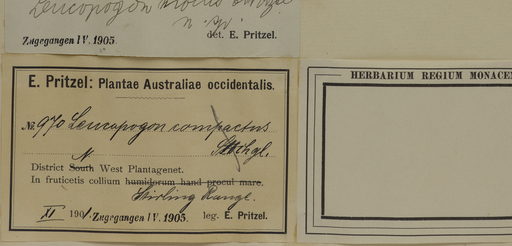 Leucopogon
n. sp.
Zugegangen IV. 1905. det. E. Pritzel.
E. Pritzel: Plantae Australiae occidentalis.
№ 970 Leucopogon compactus
Stschgl.
N
District South West Plantagenet.
In fruticetis collium humidorum hand procul mare.
Stirling Range.
XI 1901. Zugegangen IV. 1905. leg. E. Pritzel.
HERBARIUM REGIUM MONACEN